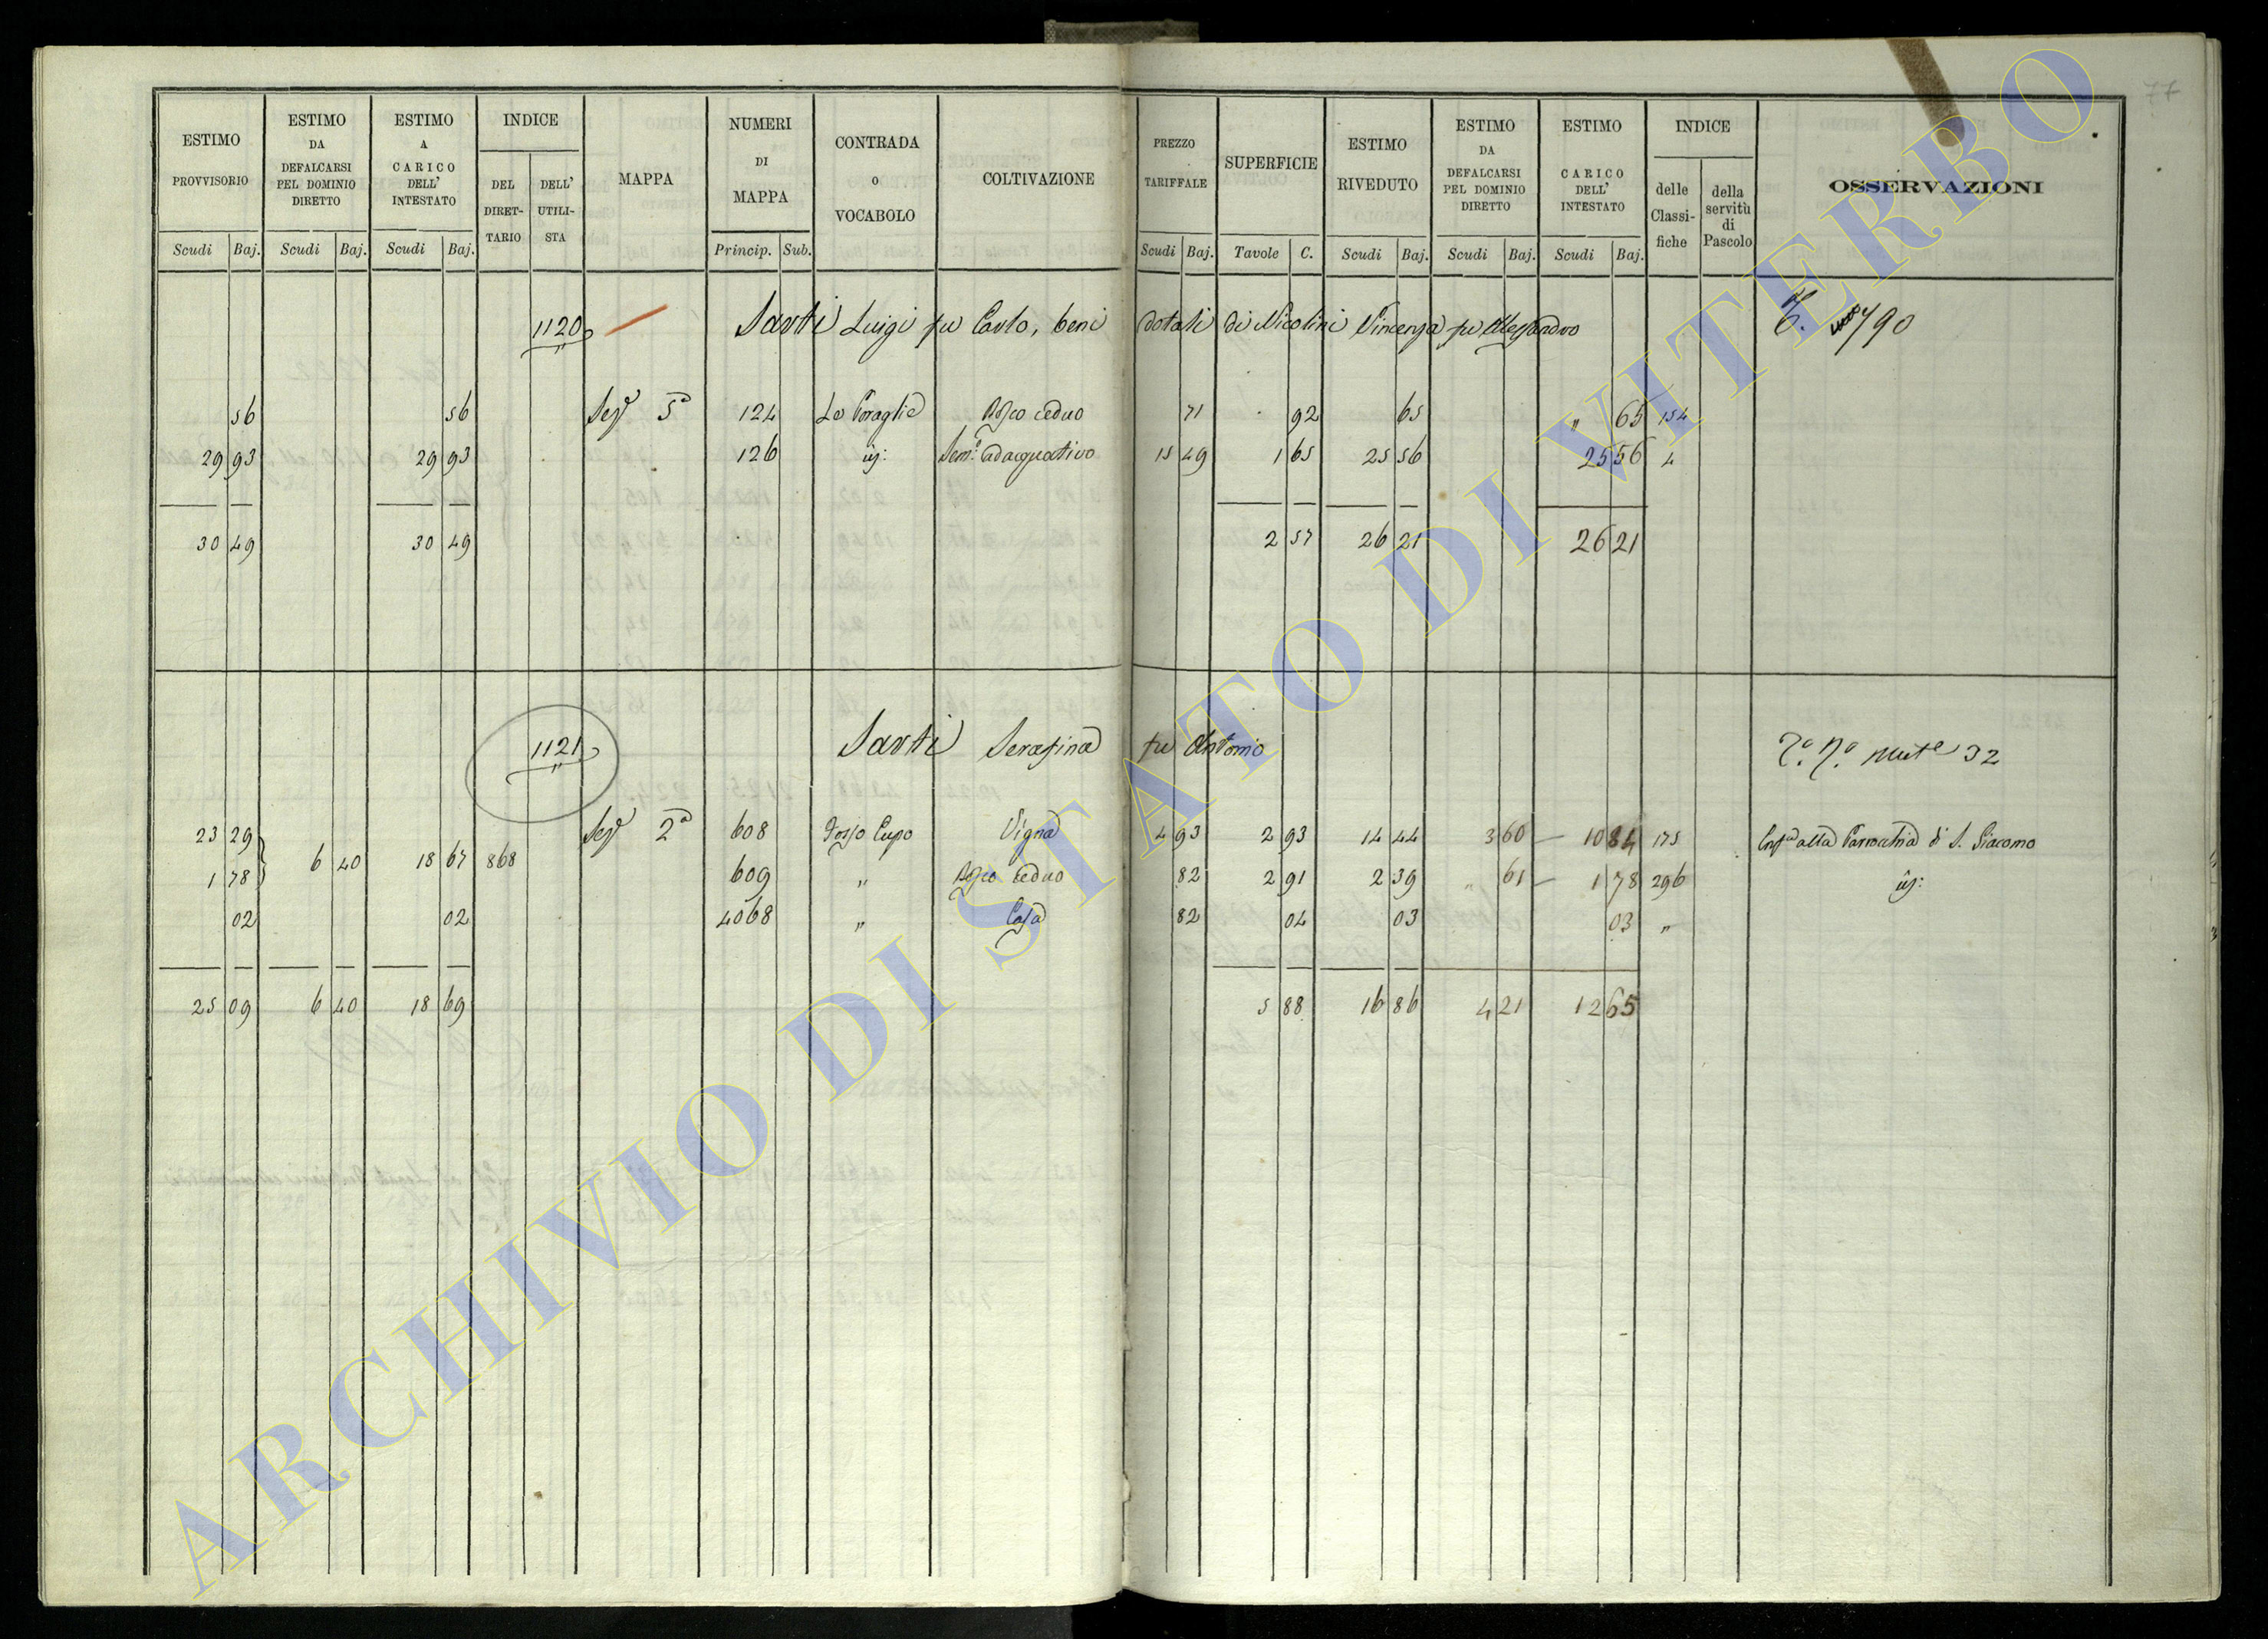 77
ESTIMO PROVVISORIO
Scudi Baj.
ESTIMO DA DEFALCARSI PEL DOMINIO DIRETTO
Scudi Baj.
ESTIMO A CARICO DELL' INTESTATO
Scudi Baj.
INDICE
DEL DIRET-TARIO
DELL' UTILI-STA
MAPPA
NUMERI DI MAPPA
Princip. Sub.
CONTRADA O VOCABOLO
COLTIVAZIONE
PREZZO TARIFFALE
Scudi Baj.
SUPERFICIE
Tavole C.
ESTIMO RIVEDUTO
Scudi Baj.
ESTIMO DA DEFALCARSI PEL DOMINIO DIRETTO
Scudi Baj.
ESTIMO CARICO DELL' INTESTATO
Scudi Baj.
INDICE
delle Classi-fiche
della servitù di Pascolo
OSSERVAZIONI
1120 Sarti Luigi fu Carlo, beni dotali di Nicolini Vincenza fu Alessandro 90
56 56 Sez.e 5a 124 Bosco ceduo 71 92 65 " 65 154
29 93 29 93 126 Sem.o adacquativo 15 49 1 65 25 56 25 56 4
30 49 30 49 2 57 26 21 26 21
1121 Sarti Serafina fu Antonio 32
23 29 6 40 18 67 868 Sez.e 2a 608 Fosso Cupo Vigna 4 93 2 93 14 44 3 60 — 10 84 175 alla Parrocchia di S. Giacomo
1 78 609 " Bosco ceduo 82 2 91 2 39 " 61 — 1 78 296
02 02 4068 " Casa 82 04 03 03 "
25 09 6 40 18 69 5 88 16 86 4 21 12 65
ARCHIVIO DI STATO DI VITERBO